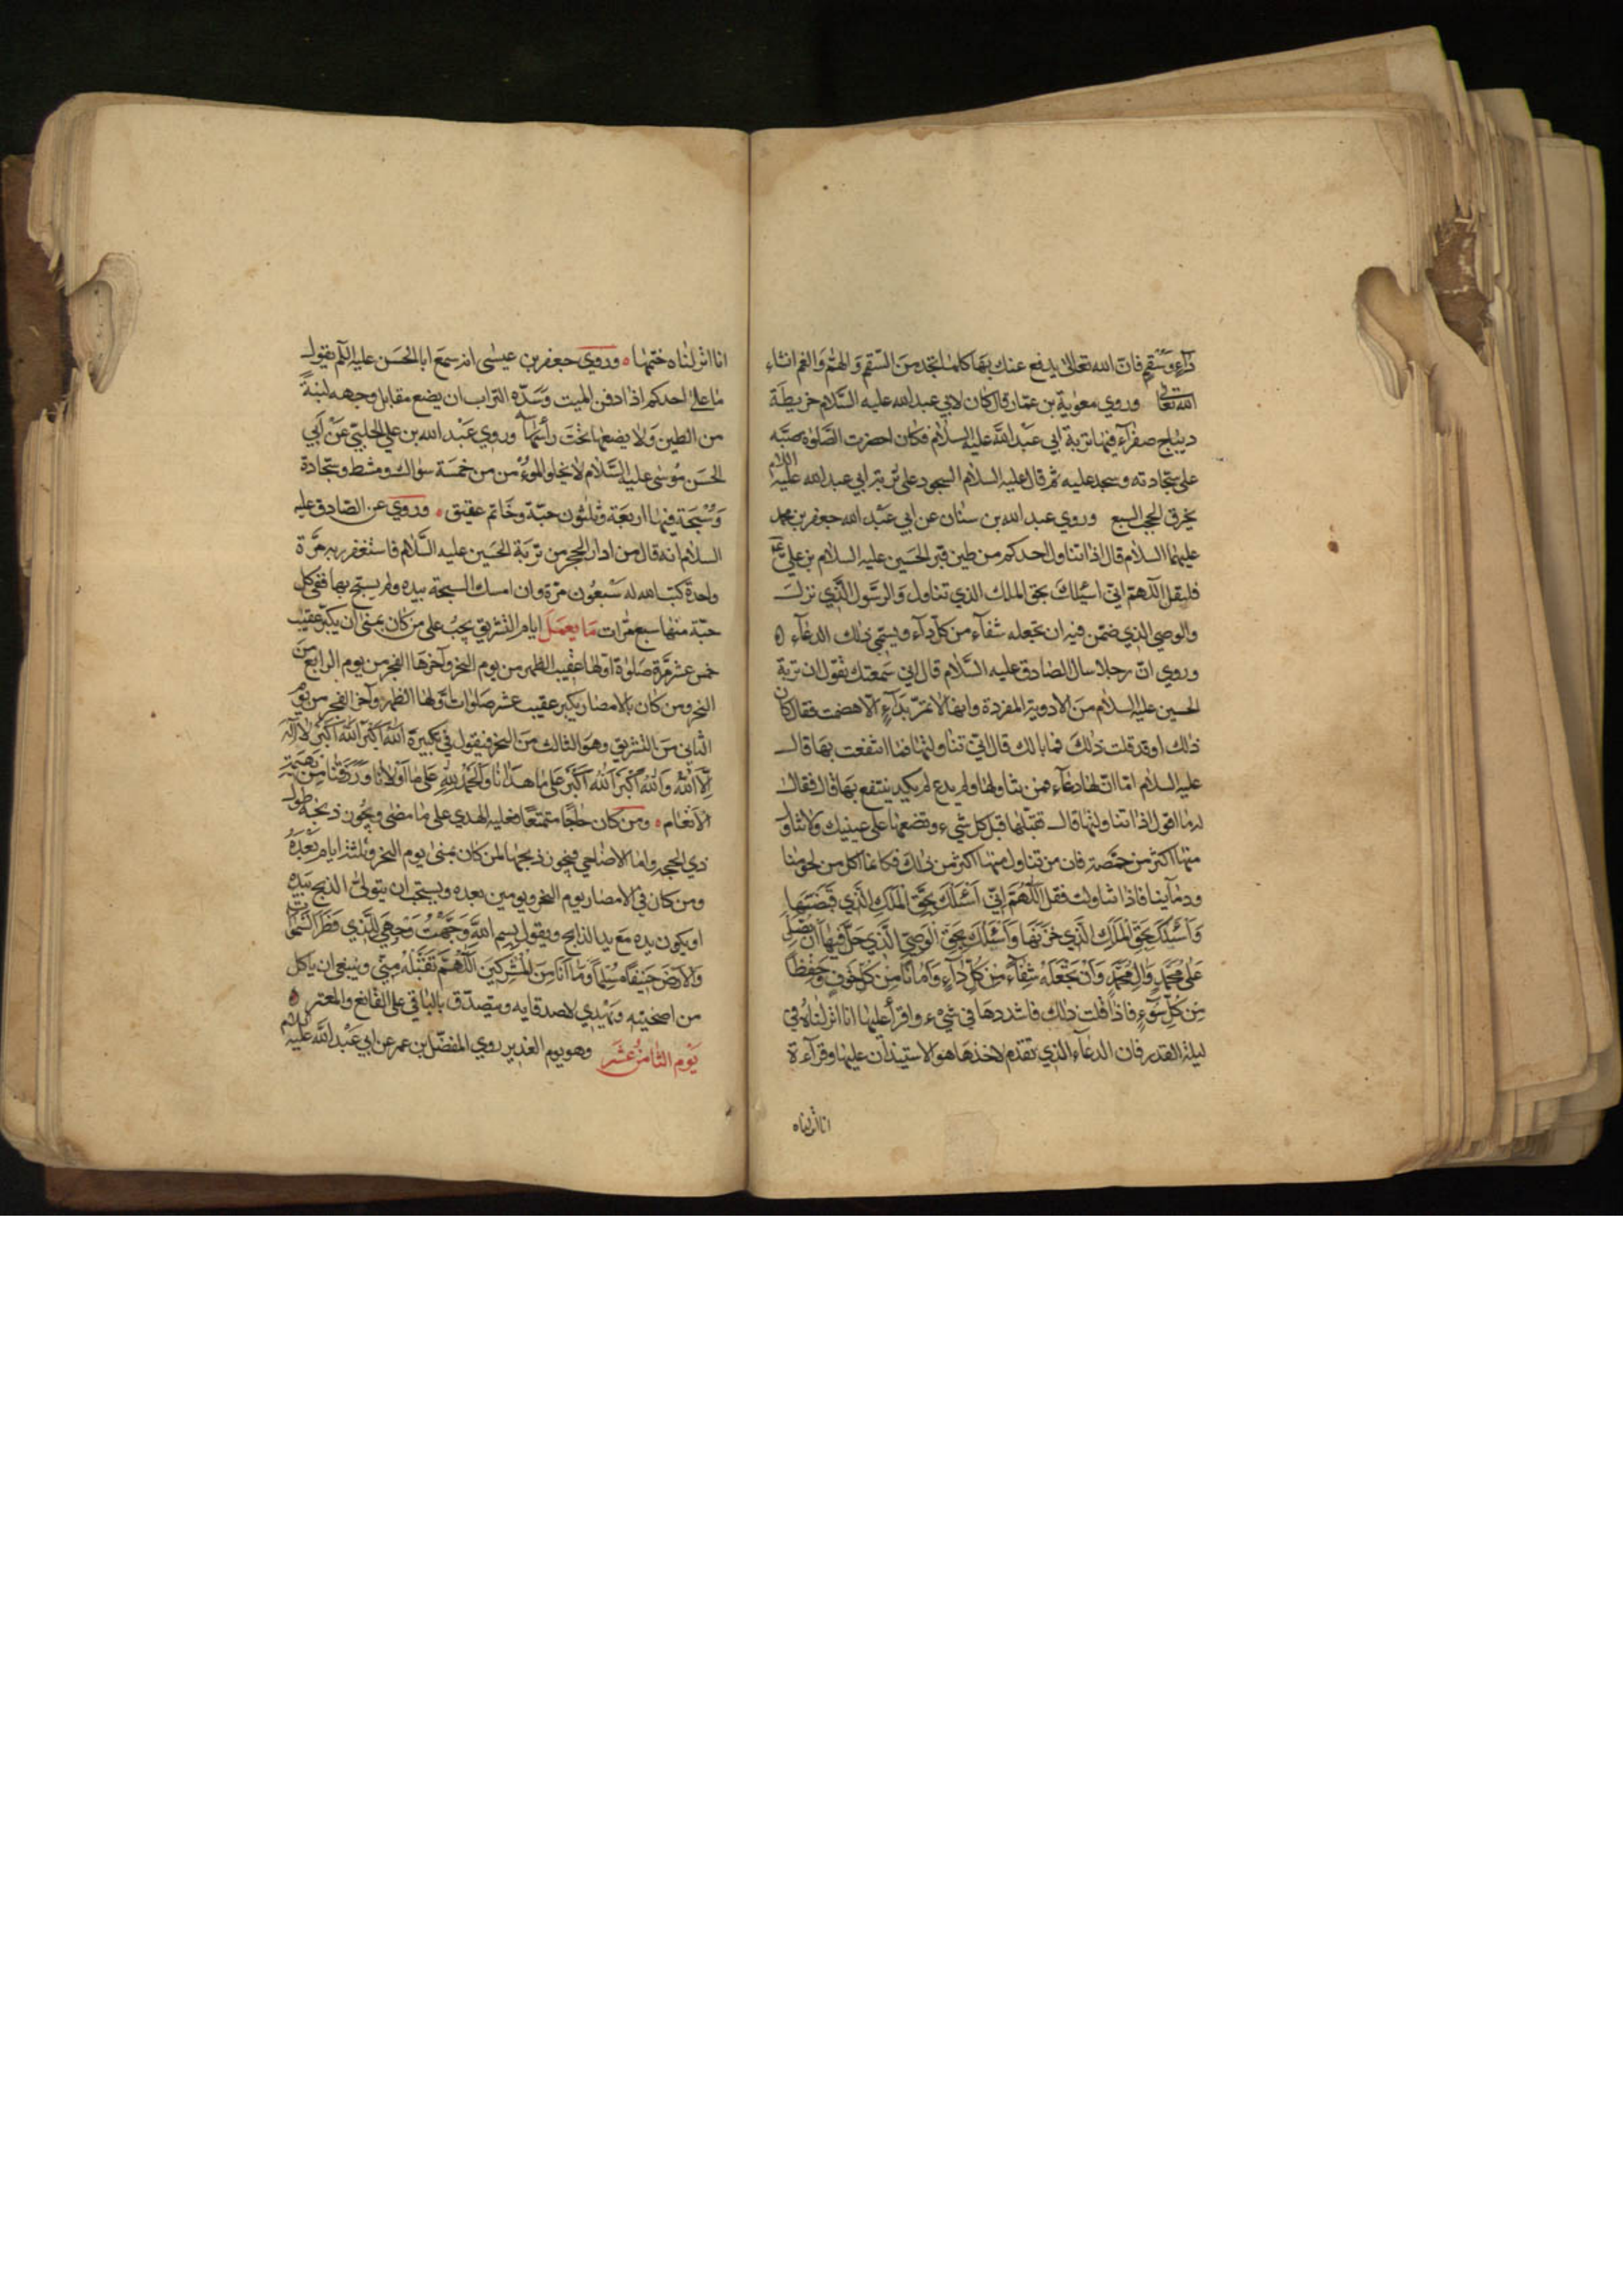 دآءٍ وسُقمٍ فانّ الله تعالى يدفع عنك بها كلما تجد من السّقم والهمّ والغم انشاء
الله تعالى وروي معوية بن عمّار قال كان لابي عبد الله عليه السّلام خريطة
ديباج صفرآء فيها تربة ابي عبد الله عليه السلام فكان اذا حضرت الصّلوٰة صبّه
على سجّادته وسجد عليه ثم قال عليه السلام السجود على تربة ابي عبد الله عليه السلام
يخرق الحجب السبع وروي عبد الله بن سنان عن ابي عبد الله جعفر بن محمد
عليهما السلام قال اذا تناول احدكم من طين قبر الحسين عليه السلام بن علي
فليقل اللّهمّ انّي اسئلك بحق الملك الذي تناول والرسول الّذي نزل
والوصي الذي ضمّن فيه ان تجعله شفآء من كلّ دآء ويسمّي ذلك الدعآء
وروي انّ رجلا سال الصّادق عليه السّلام قال اني سَمعتك تقول ان تربة
الحسين عليه السلام من الادوية المفردة وانها لا تمرّ بدآءٍ الّا هضمت فقال كان
ذلك او قد قلت ذلك فما بالك قال انّي تناولتها فما انتفعت بها قال
عليه السلام امّا انّ لها دعآء فمن تناولها ولم يدع لم يكد ينتفع بها قال فقال
له ما اقول اذا تناولتها قال تقبّلها قبل كل شيء وتضعها على عينيك ولا تناول
منها اكثر من حمّصة فان من تناول منها اكثر من ذلك فكانما اكل من لحومنا
ودمآئنا فاذا تناولت فقل اللّهُمّ انّي اَسْئلُكَ بِحَقِّ المَلَكِ الّذي قَبَضَها
وَاَسْئَلُكَ بِحَقِّ المَلَكِ الّذي خَزَنَها وَاَسْئَلُكَ بِحَقِّ الوَصيّ الّذي حَلَّ فيها اَن تُصَلّي
عَلى مُحمّدٍ وَالِ مُحَمّدٍ وَاَنْ تَجْعَلَهُ شِفآءً مِنْ كُلِّ دآءٍ وَاَمانًا مِنْ كُلِّ خَوْفٍ وَحِفْظًا
مِنْ كُلِّ سُوءٍ فاذا قلت ذلك فاشددها في شيء واقرأ عليها انا انزلناه في
ليلة القدر فان الدعآء الذي تقدم لاخذها هو الاستيذان عليها وقرآءة
انا انزلناه
انا انزلناه ختمها وروي جعفر بن عيسى انه سمع ابا الحسن عليه السلم يقول
ما على احدكم اذا دفن الميت وسّدّه التراب ان يضع مقابل وجهه لبنةً
من الطين ولا يضعها تحت رأسها وروي عبد الله بن علي الحلبيّ عن ابي
الحسن موسى عليه السّلام لا يخلوا المؤمن من خمسة سواك ومشط وسجّادة
وسُبْحَة فيها اربعة وثلثون حبّة وخاتم عقيق وروي عن الصّادق عليه
السلام انه قال من ادار الحجر من تربة الحسين عليه السّلام فاستغفر به مرّة
واحدة كتب الله له سبعُون مرّة وان امسك السبحة بيده ولم يسبّح بها ففي كل
حبّة منها سبع مرّات ما يعمل ايام التشريق يجب على من كان بمنى ان يكبّر عقيب
خمس عشر مرّة صَلوٰة اوّلها عقيب الظهر من يوم النحر وآخرها الفجر من يوم الرابع من
النحر ومن كان بالامصار يكبر عقيب عشر صلوات اوّلها الظهر وآخر الفجر من يوم
الثاني من التشريق وهو الثالث من النحر فيقول في تكبيرة اَللهُ اَكْبَرُ اَللهُ اَكْبَرُ لا اِلٰهَ
اِلّا اللهُ وَاللهُ اَكْبَرُ اَللهُ اَكْبَرُ عَلى ما هَدانا وَالحَمْدُ لِلّهِ عَلى ما اَوْلانا وَرَزَقَنا مِن بَهيمَةِ
الاَنْعام ومن كان حاجّا متمتعًا فعليه الهدي على ما مضى ويجوز ذبحه طول
ذي الحجة واما الاضاحي فيجوز ذبحها لمن كان بمنى يوم النحر وثلثة ايام بَعْدَهُ
ومن كان في الامصار يوم النحر ويومين بعده ويستحب ان يتولّى الذبح بيده
او يكون يده مع يد الذابح ويقول بِسم اللهِ وَجَّهْتُ وَجْهِيَ لِلّذي فَطَرَ السَّمٰوٰات
وَالاَرْضَ حَنيفًا مُسْلِمًا وَما اَنا مِنَ المُشْرِكينَ اَللّهُمّ تَقَبّلهُ مِنّي وينبغي ان ياكل
من اضحيته ويهدي لاصدقايه ويتصدّق بالباقي على القانع والمعتر
يَوْم الثامن عَشَر وهو يوم الغدير روي المفضّل بن عمر عن ابي عبد الله عليه السلام